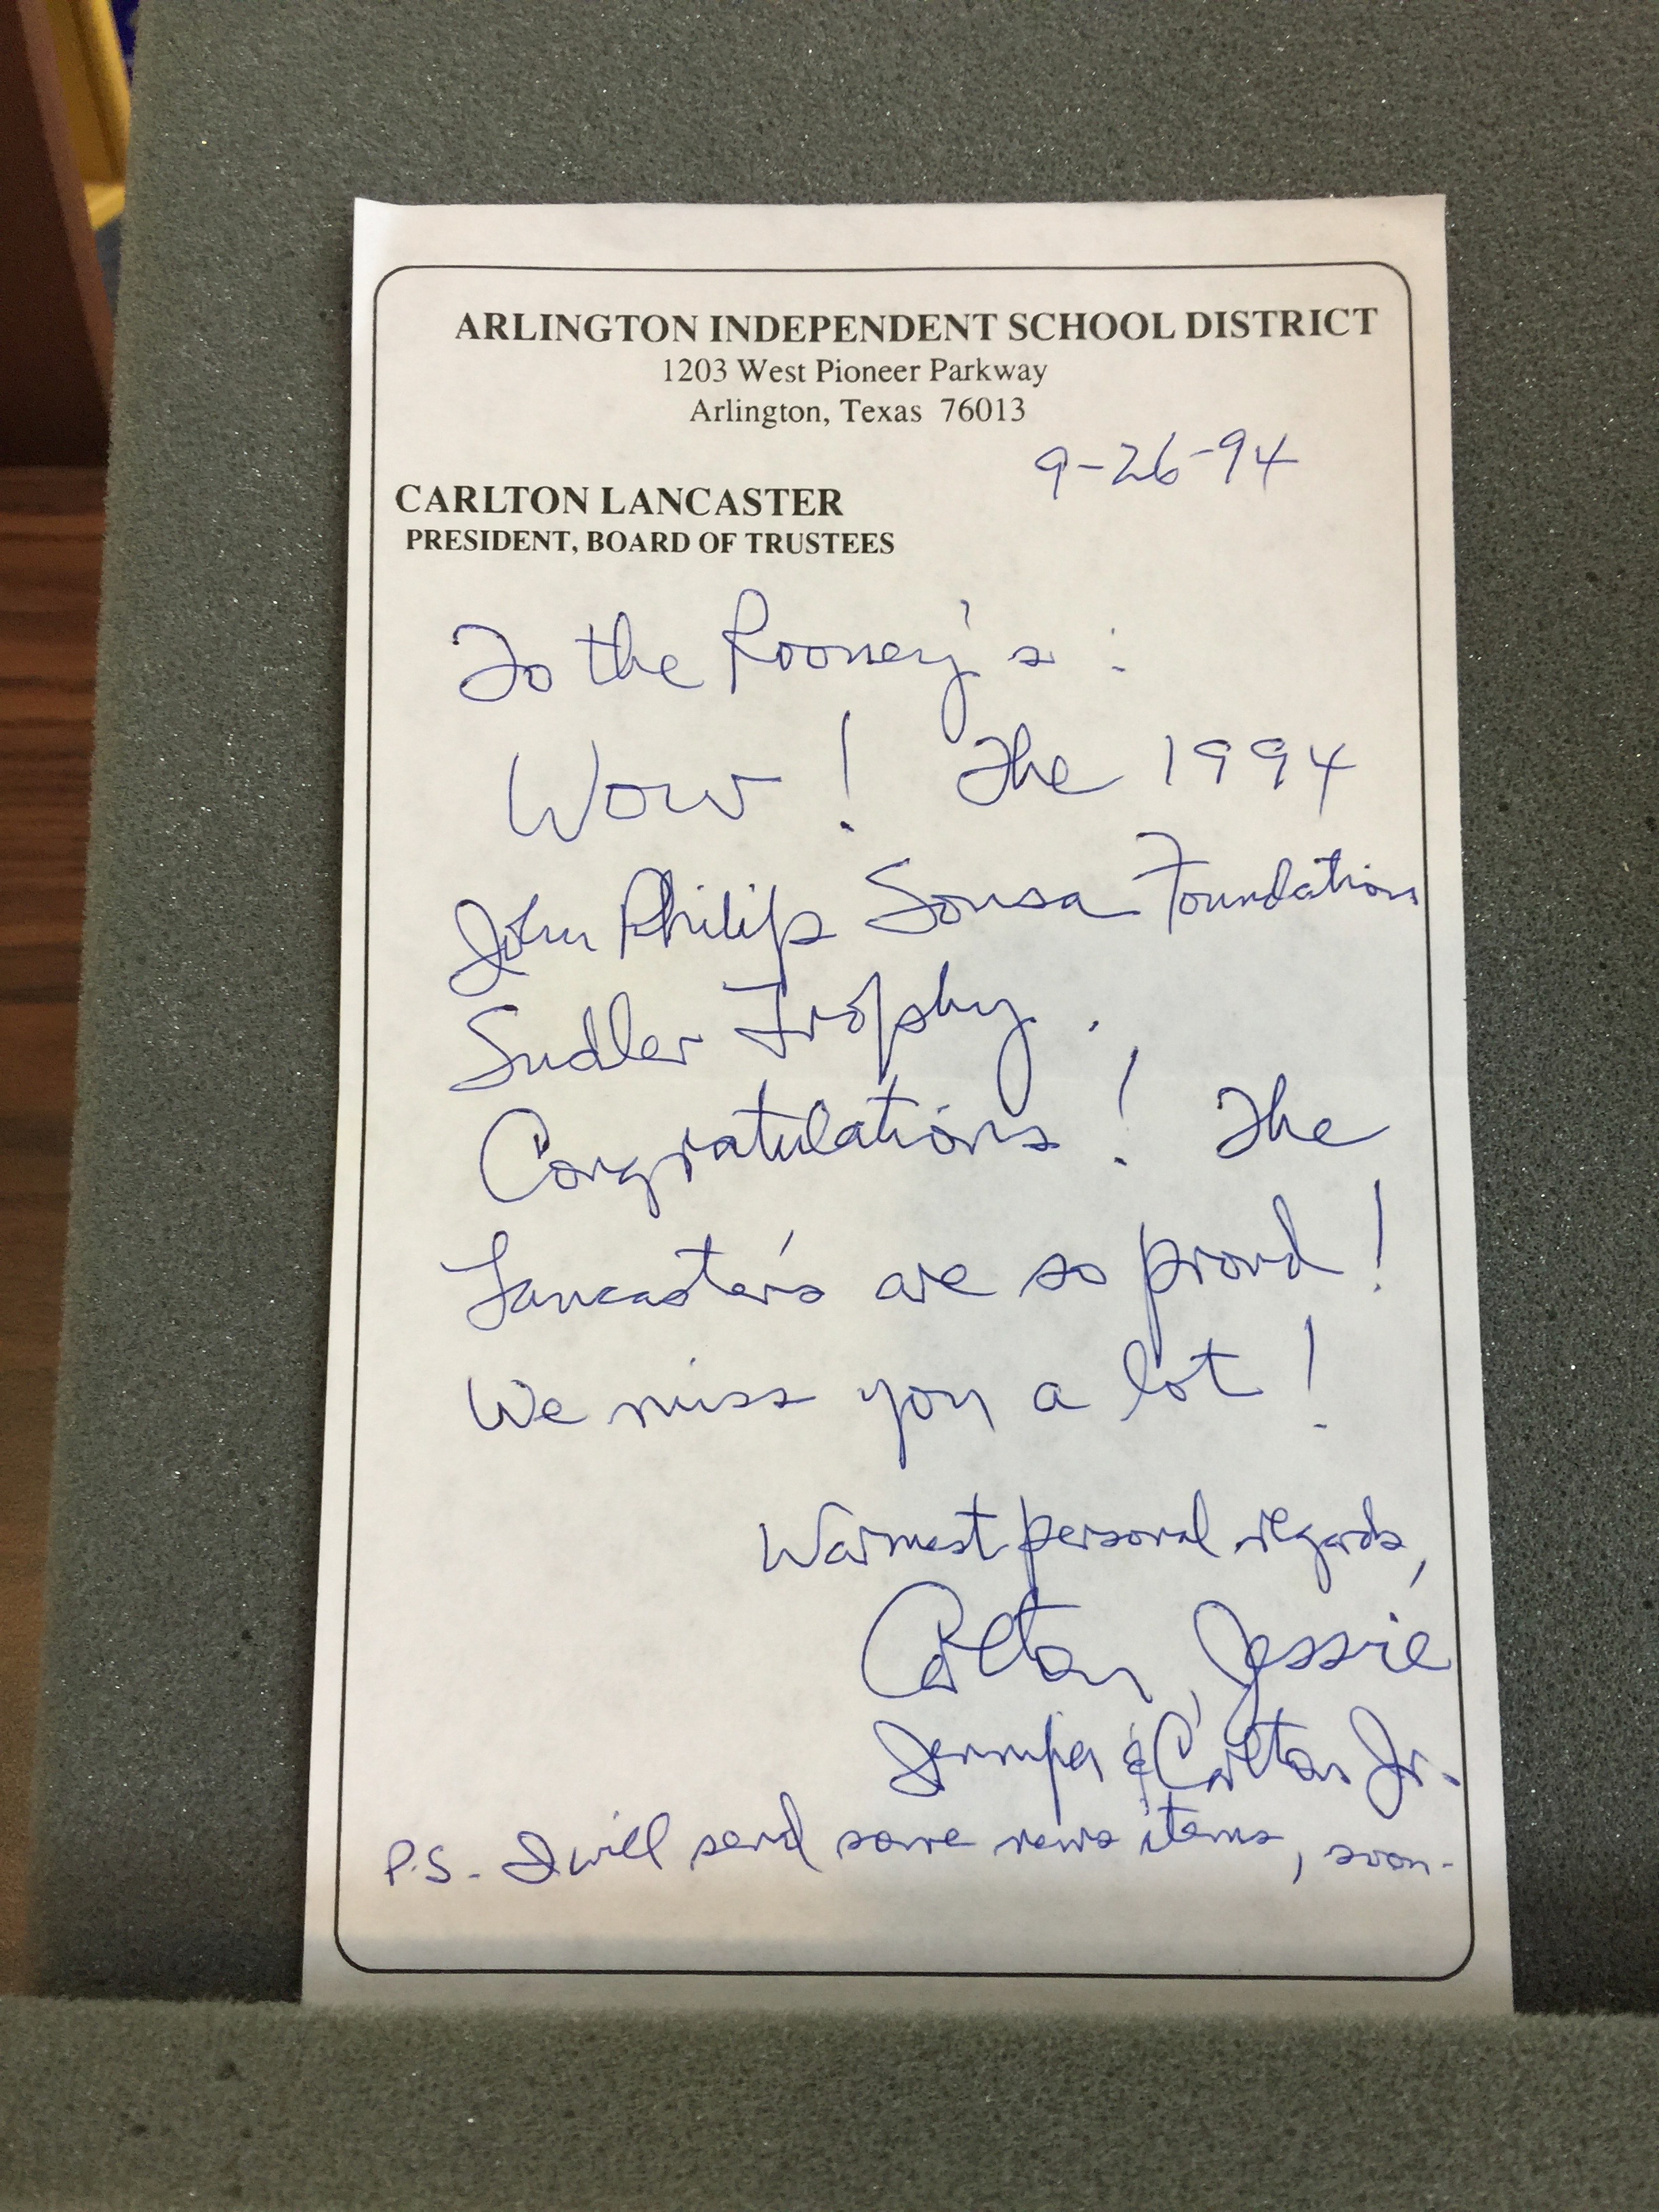 ARLINGTON INDEPENDENT SCHOOL DISTRICT
1203 West Pioneer Parkway
Arlington, Texas 76013
9-26-94
CARLTON LANCASTER
PRESIDENT, BOARD OF TRUSTEES
To the Rooney's:
Wow! The 1994
John Philip Sousa Foundation
Sudler Trophy.
Congratulations! The
Lancaster's are so proud!
We miss you a lot!
Warmest personal regards,
Carlton, Jessie
Jennifer & Carlton Jr.
P.S. I will send some news items, soon-